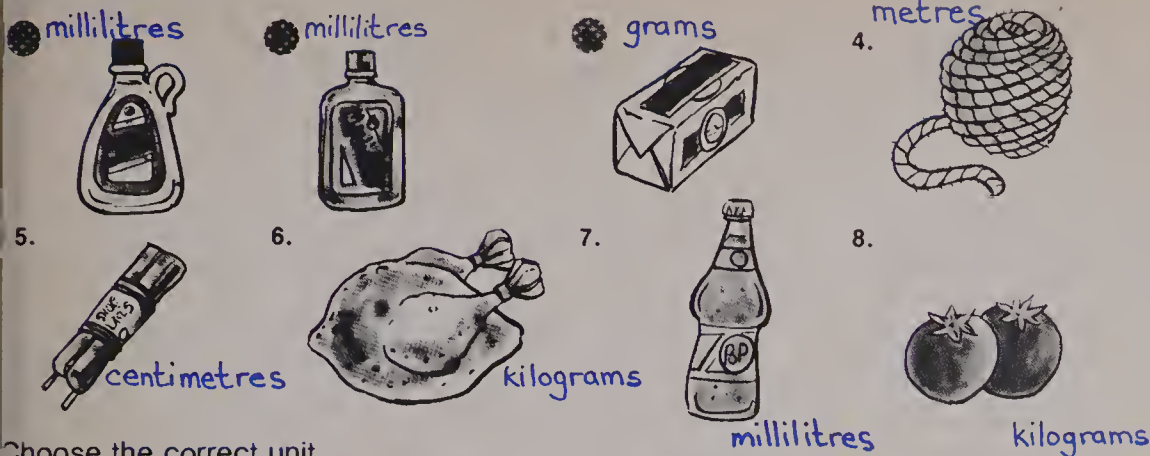 millilitres
millilitres
grams
metres
4.
5.
SHOE
LACES
centimetres
6.
kilograms
7.
BP
millilitres
8.
kilograms
Choose the correct unit